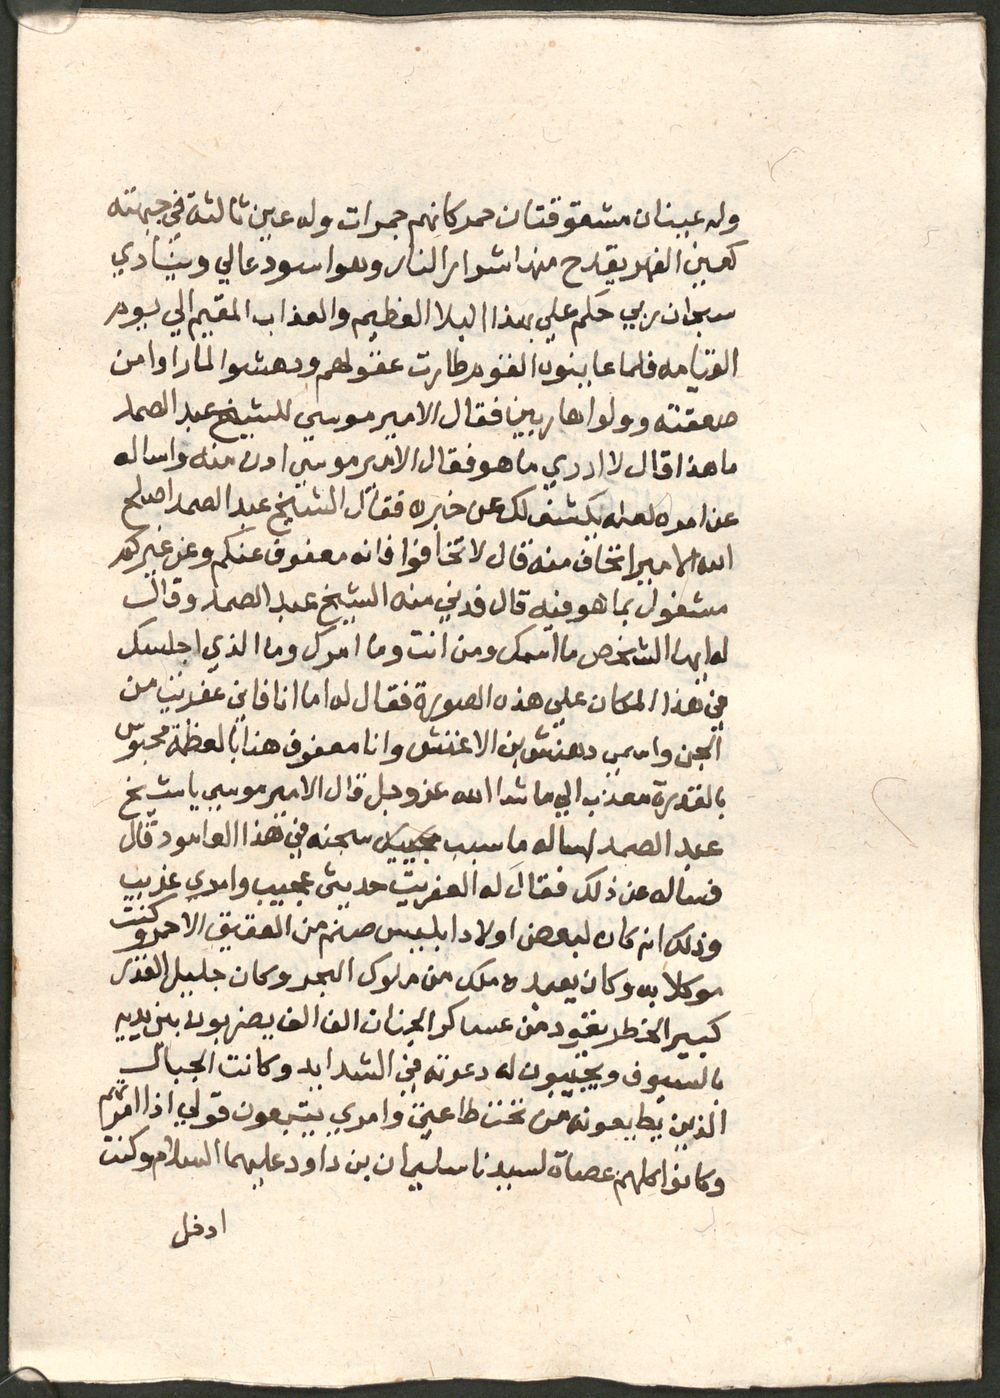 وله عينان مشقوقتان حمر كانهم جمرات وله عين ثالثة في جبهته
كعين الفهد يقدح منها شرار النار وهو اسود عالي وينادي
سبحان ربي حكم علي بهذا البلا العظيم والعذاب المقيم الي يوم
القيامه فلما عاينوه القوم طارت عقولهم ودهشوا لما راوا من
صعقته وولوا هاربين فقال الامير موسي للشيخ عبد الصمد
ما هذا قال لا ادري ما هو فقال الامير موسي ادن منه واساله
عن امره لعله يكشف لك عن خبره فقال الشيخ عبد الصمد اصلح
الله الامير انخاف منه قال لا تخافوا فانه معفوف عنكم وعن غيركم
مشغول بما هو فيه قال فدني منه الشيخ عبد الصمد وقال
له ايها الشخص ما اسمك ومن انت وما امرك وما الذي اجلسك
في هذا المكان علي هذه الصورة فقال له اما انا فاني عفريت من
الجن واسمي دهنش بن الاعنش وانا معفوف هنا بالعظمة محبوس
بالقدرة معذب الي ما شا الله عز وجل قال الامير موسي يا شيخ
عبد الصمد اساله ما سبب سجنه في هذا العامود قال
فساله عن ذلك فقال له العفريت حديثي عجيب وامري غريب
وذلك انه كان لبعض اولاد ابليس صنم من العقيق الاحمر وكنت
موكلا به وكان يعبده ملك من ملوك البحر وكان جليل القدر
كبير الخطر يقود من عساكر الجان الف الف يضربون بين يديه
بالسيوف ويجيبون له دعوته في الشدايد وكانت الجبال
الذين يطيعونه من تحت طاعتي وامري يتبعون قولي اذا امرتهم
وكانوا كلهم عصاة لسيدنا سليمان بن داود عليهما السلام وكنت
ادخل